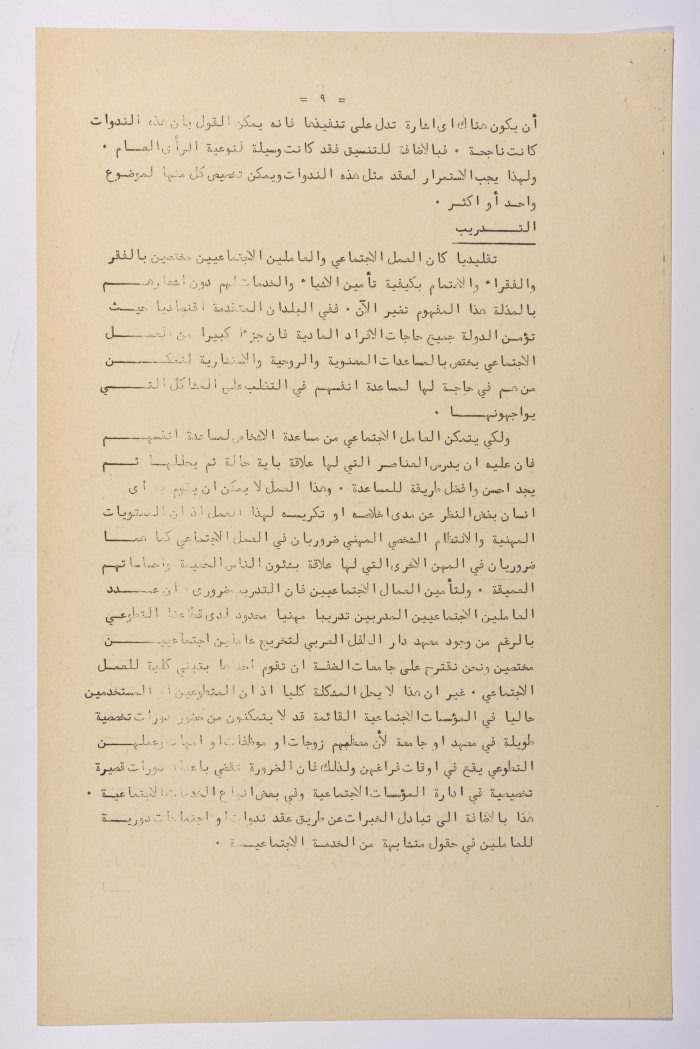 = ٩ =
أن يكون هناك اى اشارة تدل على تنفيذها فانه يمكن القول بان هذه الندوات
كانت ناجحة ٠ فبالاضافة للتنسيق فقد كانت وسيلة لتوعية الرأى العام ٠
ولهذا يجب الاستمرار لعقد مثل هذه الندوات ويمكن تخصيص كل منها لموضوع
واحد أو اكثر ٠
التدريب
تقليديا كان العمل الاجتماعي والعاملين الاجتماعيين مختصين بالفقر
والفقراء والاهتمام بكيفية تأمين الاشياء والخدمات لهم دون اشعارهم
بالمذلة هذا المفهوم تغير الآن ٠ ففي البلدان المتقدمة اقتصاديا حيث
تؤمن الدولة جميع حاجات الافراد المادية فان جزءا كبيرا من العمل
الاجتماعي يختص بالمساعدات المعنوية والروحية والاستشارية لتمكين
من هم في حاجة لها لمساعدة انفسهم في التغلب على المشاكل التي
يواجهونها ٠
ولكي يتمكن العامل الاجتماعي من مساعدة الاشخاص لمساعدة انفسهم
فان عليه ان يدرس العناصر التي لها علاقة باية حالة ثم يحللها ثم
يجد احسن وافضل طريقة للمساعدة ٠ وهذا العمل لا يمكن ان يقوم به اى
انسان بغض النظر عن مدى اخلاصه او تكريسه لهذا العمل اذ ان المستويات
المهنية والانتظام الشخصي المهني ضروريان في العمل الاجتماعي كما هما
ضروريان في المهن الاخرى التي لها علاقة بشئون الناس الحميمة واحساساتهم
العميقة ٠ ولتأمين العمال الاجتماعيين فان التدريب ضرورى ٠ ان عدد
العاملين الاجتماعيين المدربين تدريبا مهنيا محدود لدى قطاعنا التطوعي
بالرغم من وجود معهد دار الطفل العربي لتخريج عاملين اجتماعيين
مختصين ونحن نقترح على جامعات الضفة ان تقوم احداها بتبني كلية للعمل
الاجتماعي ٠ غير ان هذا لا يحل المشكلة كليا اذ ان المتطوعين او المستخدمين
حاليا في المؤسسات الاجتماعية القائمة قد لا يتمكنون من حضور دورات تخصصية
طويلة في معهد او جامعة لأن معظمهم زوجات او موظفات او امهات وعملهن
التطوعي يقع في اوقات فراغهن ولذلك فان الضرورة تقضي باعداد دورات قصيرة
تخصصية في ادارة المؤسسات الاجتماعية وفي بعض انواع الخدمات الاجتماعية ٠
هذا بالاضافة الى تبادل الخبرات عن طريق عقد ندوات او اجتماعات دورية
للعاملين في حقول متشابهة من الخدمة الاجتماعية ٠